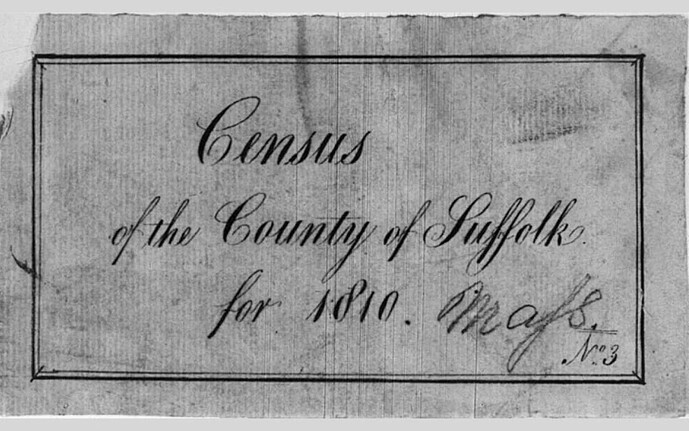 Census
of the County of Suffolk.
for 1810. Maſs.
No. 3